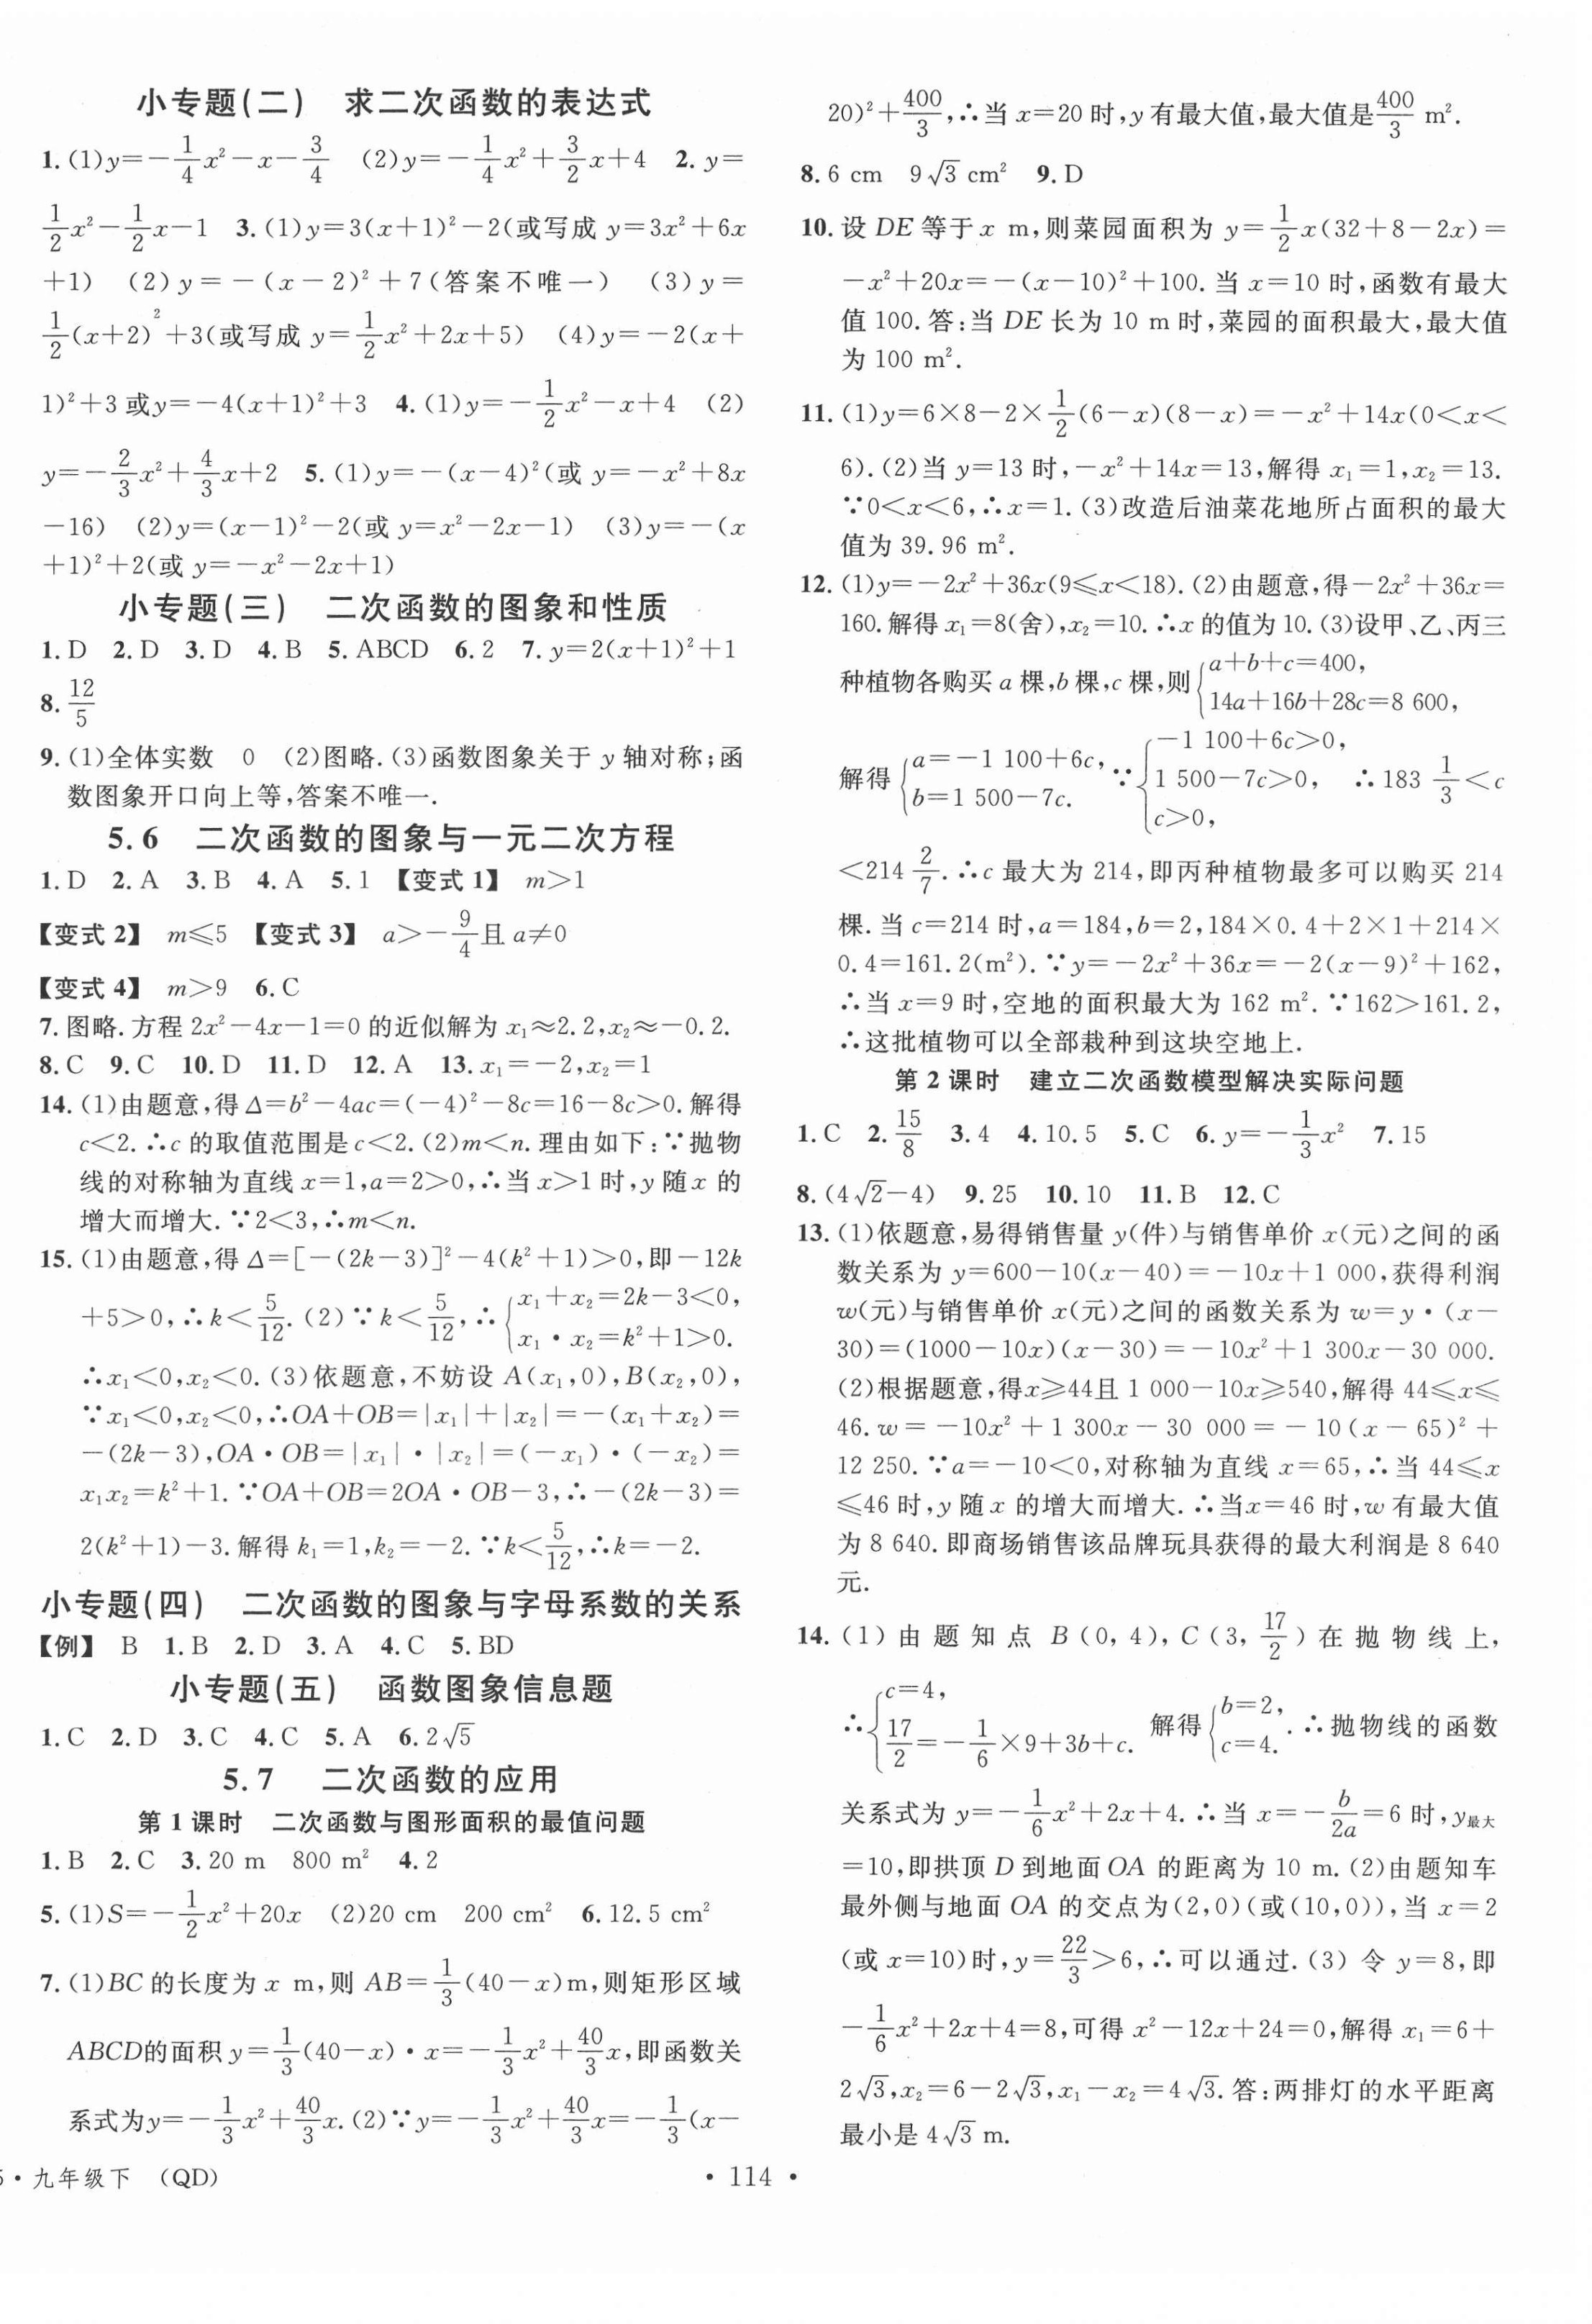 小专题(二)　求二次函数的表达式
1.(1)y=-\frac{1}{4}x²-x-\frac{3}{4}　(2)y=-\frac{1}{4}x²+\frac{3}{2}x+4　2.y=
\frac{1}{2}x²-\frac{1}{2}x-1　3.(1)y=3(x+1)²-2(或写成 y=3x²+6x
+1)　(2)y=-(x-2)²+7(答案不唯一)　(3)y=
\frac{1}{2}(x+2)²+3(或写成 y=\frac{1}{2}x²+2x+5)　(4)y=-2(x+
1)²+3 或y=-4(x+1)²+3　4.(1)y=-\frac{1}{2}x²-x+4　(2)
y=-\frac{2}{3}x²+\frac{4}{3}x+2　5.(1)y=-(x-4)²(或 y=-x²+8x
-16)　(2)y=(x-1)²-2(或 y=x²-2x-1)　(3)y=-(x
+1)²+2(或 y=-x²-2x+1)
小专题(三)　二次函数的图象和性质
1.D　2.D　3.D　4.B　5.ABCD　6.2　7.y=2(x+1)²+1
8.\frac{12}{5}
9.(1)全体实数　0　(2)图略.(3)函数图象关于 y 轴对称;函
数图象开口向上等,答案不唯一.
5.6　二次函数的图象与一元二次方程
1.D　2.A　3.B　4.A　5.1　【变式 1】　m>1
【变式 2】　m≤5　【变式 3】　a>-\frac{9}{4}且 a≠0
【变式 4】　m>9　6.C
7.图略.方程 2x²-4x-1=0 的近似解为 x₁≈2.2,x₂≈-0.2.
8.C　9.C　10.D　11.D　12.A　13.x₁=-2,x₂=1
14.(1)由题意,得 Δ=b²-4ac=(-4)²-8c=16-8c>0.解得
c<2.∴c 的取值范围是 c<2.(2)m<n.理由如下:∵抛物
线的对称轴为直线 x=1,a=2>0,∴当 x>1 时,y 随 x 的
增大而增大.∵2<3,∴m<n.
15.(1)由题意,得 Δ=[-(2k-3)]²-4(k²+1)>0,即-12k
+5>0,∴k<\frac{5}{12}.(2)∵k<\frac{5}{12},∴{x₁+x₂=2k-3<0,
x₁·x₂=k²+1>0.
∴x₁<0,x₂<0.(3)依题意,不妨设 A(x₁,0),B(x₂,0),
∵x₁<0,x₂<0,∴OA+OB=|x₁|+|x₂|=-(x₁+x₂)=
-(2k-3),OA·OB=|x₁|·|x₂|=(-x₁)·(-x₂)=
x₁x₂=k²+1.∵OA+OB=2OA·OB-3,∴-(2k-3)=
2(k²+1)-3.解得 k₁=1,k₂=-2.∵k<\frac{5}{12},∴k=-2.
小专题(四)　二次函数的图象与字母系数的关系
【例】　B　1.B　2.D　3.A　4.C　5.BD
小专题(五)　函数图象信息题
1.C　2.D　3.C　4.C　5.A　6.2√5
5.7　二次函数的应用
第 1 课时　二次函数与图形面积的最值问题
1.B　2.C　3.20 m　800 m²　4.2
5.(1)S=-\frac{1}{2}x²+20x　(2)20 cm　200 cm²　6.12.5 cm²
7.(1)BC 的长度为 x m,则 AB=\frac{1}{3}(40-x)m,则矩形区域
ABCD的面积 y=\frac{1}{3}(40-x)·x=-\frac{1}{3}x²+\frac{40}{3}x,即函数关
系式为y=-\frac{1}{3}x²+\frac{40}{3}x.(2)∵y=-\frac{1}{3}x²+\frac{40}{3}x=-\frac{1}{3}(x-
20)²+\frac{400}{3},∴当 x=20 时,y 有最大值,最大值是\frac{400}{3} m².
8.6 cm　9√3 cm²　9.D
10.设 DE 等于 x m,则菜园面积为 y=\frac{1}{2}x(32+8-2x)=
-x²+20x=-(x-10)²+100.当 x=10 时,函数有最大
值 100.答:当 DE 长为 10 m 时,菜园的面积最大,最大值
为 100 m².
11.(1)y=6×8-2×\frac{1}{2}(6-x)(8-x)=-x²+14x(0<x<
6).(2)当 y=13 时,-x²+14x=13,解得 x₁=1,x₂=13.
∵0<x<6,∴x=1.(3)改造后油菜花地所占面积的最大
值为 39.96 m².
12.(1)y=-2x²+36x(9≤x<18).(2)由题意,得-2x²+36x=
160.解得 x₁=8(舍),x₂=10.∴x 的值为 10.(3)设甲、乙、丙三
种植物各购买 a 棵,b 棵,c 棵,则{a+b+c=400,
14a+16b+28c=8 600,
解得{a=-1 100+6c,
b=1 500-7c.
∵{-1 100+6c>0,
1 500-7c>0,
c>0,
∴183\frac{1}{3}<c
<214\frac{2}{7}.∴c 最大为 214,即丙种植物最多可以购买 214
棵.当 c=214 时,a=184,b=2,184×0.4+2×1+214×
0.4=161.2(m²).∵y=-2x²+36x=-2(x-9)²+162,
∴当 x=9 时,空地的面积最大为 162 m².∵162>161.2,
∴这批植物可以全部栽种到这块空地上.
第 2 课时　建立二次函数模型解决实际问题
1.C　2.\frac{15}{8}　3.4　4.10.5　5.C　6.y=-\frac{1}{3}x²　7.15
8.(4√2-4)　9.25　10.10　11.B　12.C
13.(1)依题意,易得销售量 y(件)与销售单价 x(元)之间的函
数关系为 y=600-10(x-40)=-10x+1 000,获得利润
w(元)与销售单价 x(元)之间的函数关系为 w=y·(x-
30)=(1000-10x)(x-30)=-10x²+1 300x-30 000.
(2)根据题意,得x≥44且 1 000-10x≥540,解得 44≤x≤
46.w=-10x²+1 300x-30 000=-10(x-65)²+
12 250.∵a=-10<0,对称轴为直线 x=65,∴当 44≤x
≤46 时,y 随 x 的增大而增大.∴当x=46 时,w 有最大值
为 8 640.即商场销售该品牌玩具获得的最大利润是 8 640
元.
14.(1)由题知点 B(0,4),C(3,\frac{17}{2})在抛物线上,
∴{c=4,
\frac{17}{2}=-\frac{1}{6}×9+3b+c.
解得{b=2,
c=4.
.∴抛物线的函数
关系式为 y=-\frac{1}{6}x²+2x+4.∴当 x=-\frac{b}{2a}=6 时,y最大
=10,即拱顶 D 到地面 OA 的距离为 10 m.(2)由题知车
最外侧与地面 OA 的交点为(2,0)(或(10,0)),当 x=2
(或 x=10)时,y=\frac{22}{3}>6,∴可以通过.(3)令 y=8,即
-\frac{1}{6}x²+2x+4=8,可得 x²-12x+24=0,解得 x₁=6+
2√3,x₂=6-2√3,x₁-x₂=4√3.答:两排灯的水平距离
最小是 4√3 m.
·九年级下　(QD)
·114·